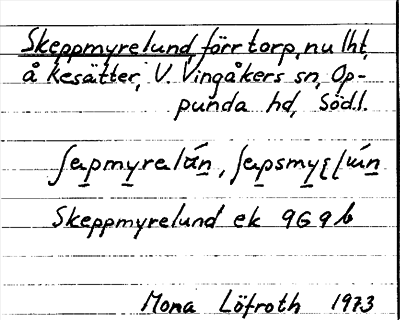 Skeppmyrelund, förr torp, nu lht,
å Kesätter, V. Vingåkers sn, Op-
punda hd, Södl.
Skeppmyrelund ek 9G9b
Mona Löfroth 1973